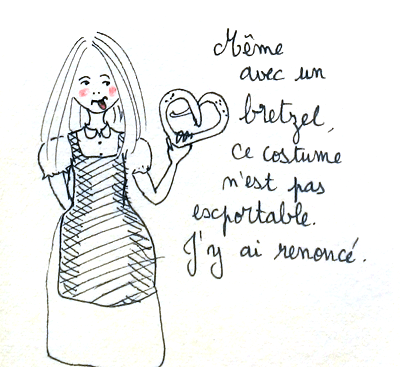 Même
avec un
bretzel,
ce costume
n'est pas
exportable.
J'y ai renoncé.